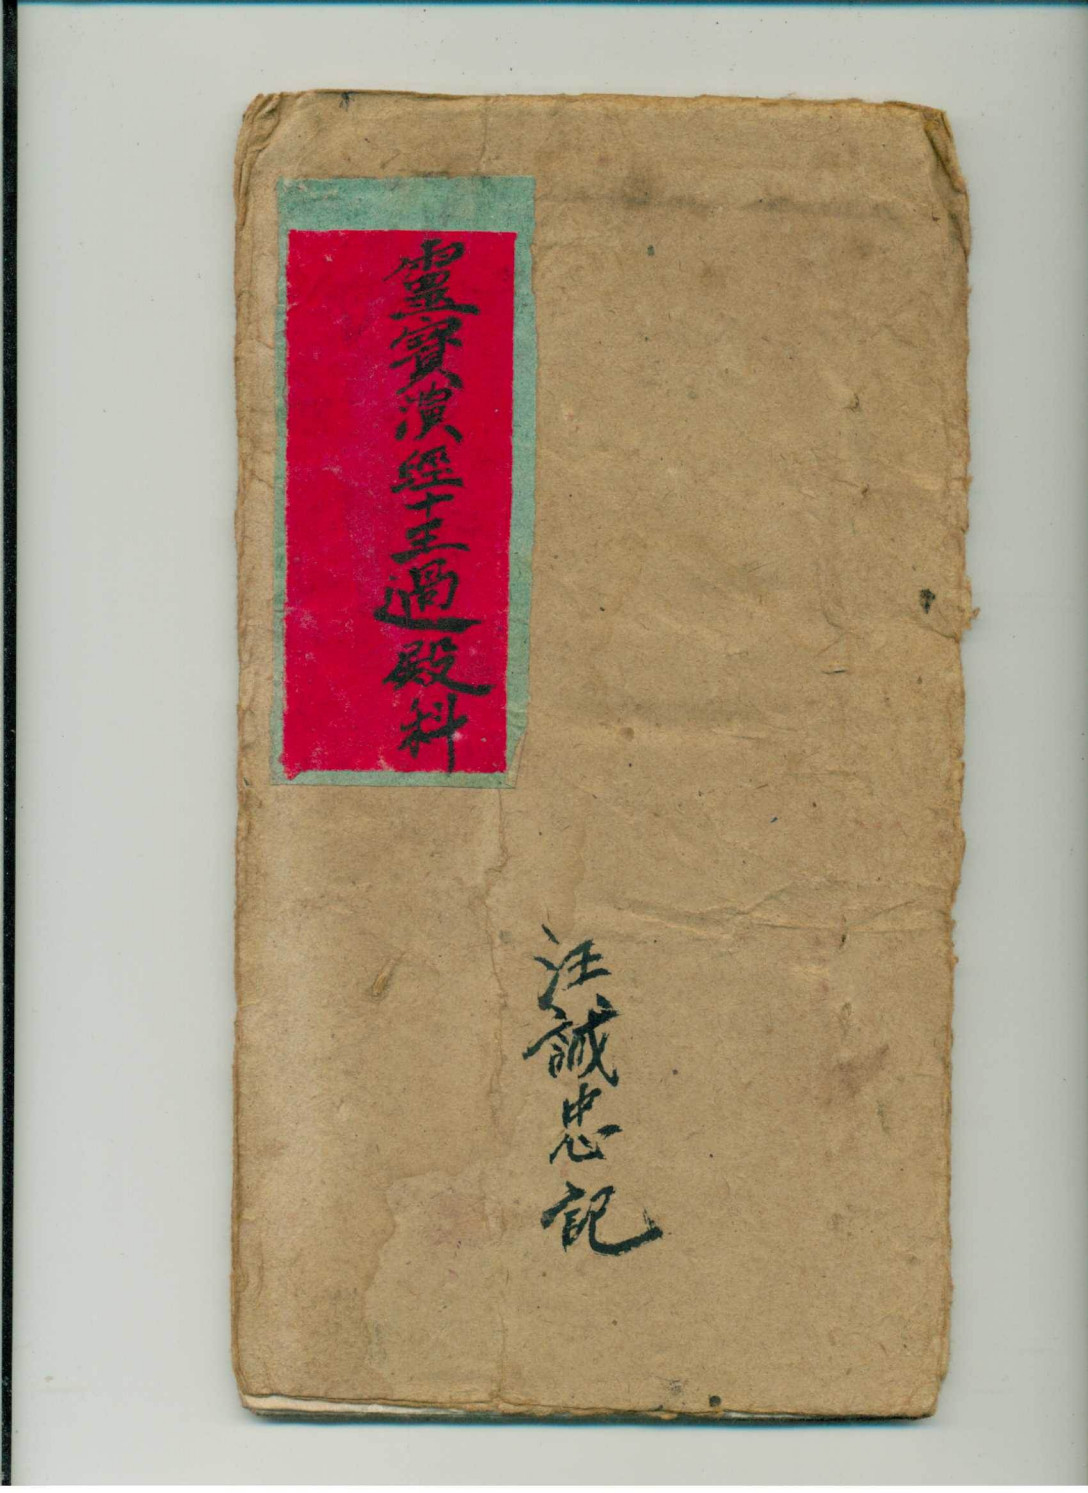 靈寳演經十王過殿科
汪誠忠記